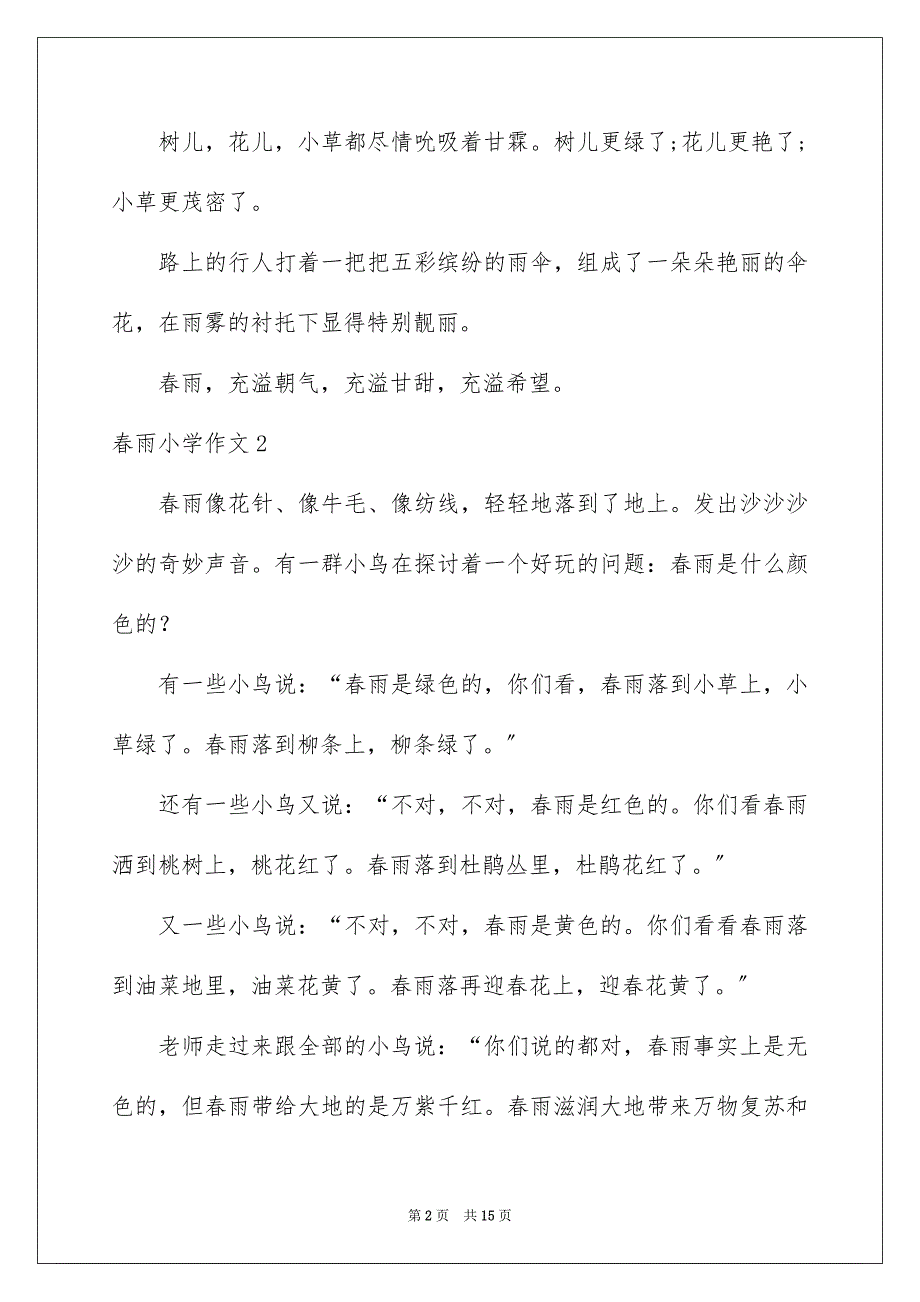 树儿，花儿，小草都尽情吮吸着甘霖。树儿更绿了;花儿更艳了;
小草更茂密了。
路上的行人打着一把把五彩缤纷的雨伞，组成了一朵朵艳丽的伞
花，在雨雾的衬托下显得特别靓丽。
春雨，充溢朝气，充溢甘甜，充溢希望。
春雨小学作文2
春雨像花针、像牛毛、像纺线，轻轻地落到了地上。发出沙沙沙
沙的奇妙声音。有一群小鸟在探讨着一个好玩的问题：春雨是什么颜
色的？
有一些小鸟说：“春雨是绿色的，你们看，春雨落到小草上，小
草绿了。春雨落到柳条上，柳条绿了。〞
还有一些小鸟又说：“不对，不对，春雨是红色的。你们看春雨
洒到桃树上，桃花红了。春雨落到杜鹃丛里，杜鹃花红了。〞
又一些小鸟说：“不对，不对，春雨是黄色的。你们看看春雨落
到油菜地里，油菜花黄了。春雨落再迎春花上，迎春花黄了。〞
老师走过来跟全部的小鸟说：“你们说的都对，春雨事实上是无
色的，但春雨带给大地的是万紫千红。春雨滋润大地带来万物复苏和
第 2 页 共 15 页